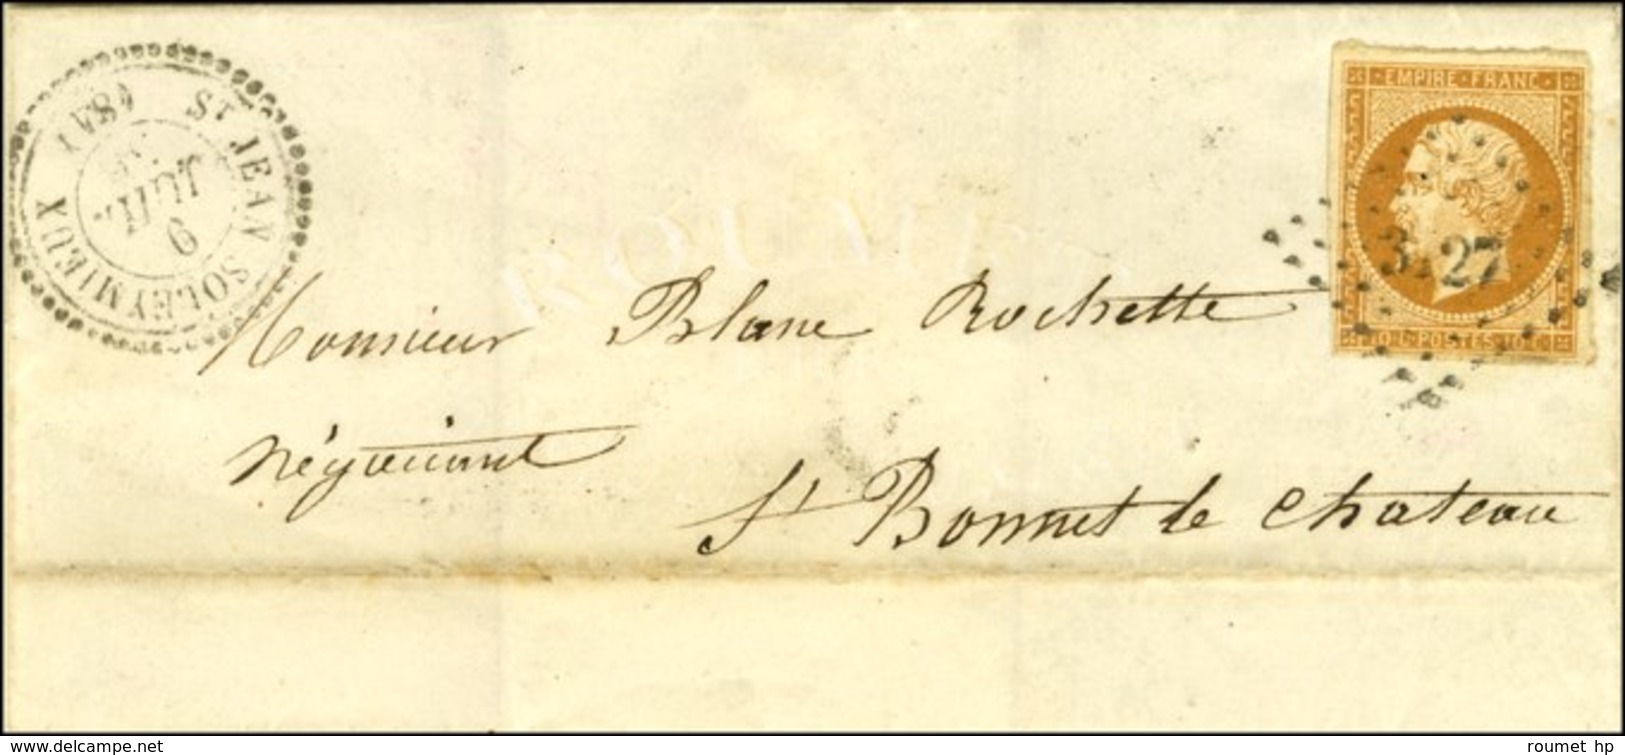 ST JEAN SOLEYMIEUX (84)
9
JUIL
EMPIRE FRANC
3 27
10 C. POSTES 10 C.
Monsieur Blanc Rochette
négociant
St Bonnet le Chateau
www.delcampe.net
roumet hp